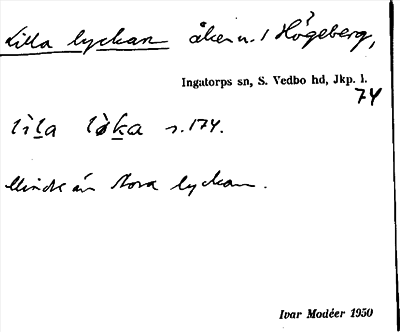 Lilla lyckan åker n. 1 Högeberg,
Ingatorps sn, S. Vedbo hd, Jkp. l.
74
s. 174.
Mindre än Stora lyckan.
Ivar Modéer 1950